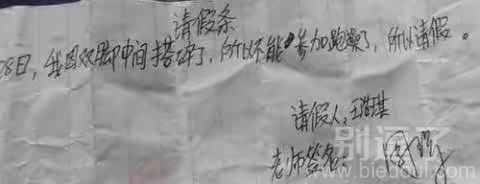 请假条
28日，我因双脚中间搭碎了，所以不能参加跑操了，所以请假。
请假人：王浩琪
老师签名：
别逗了
www.biedoul.com